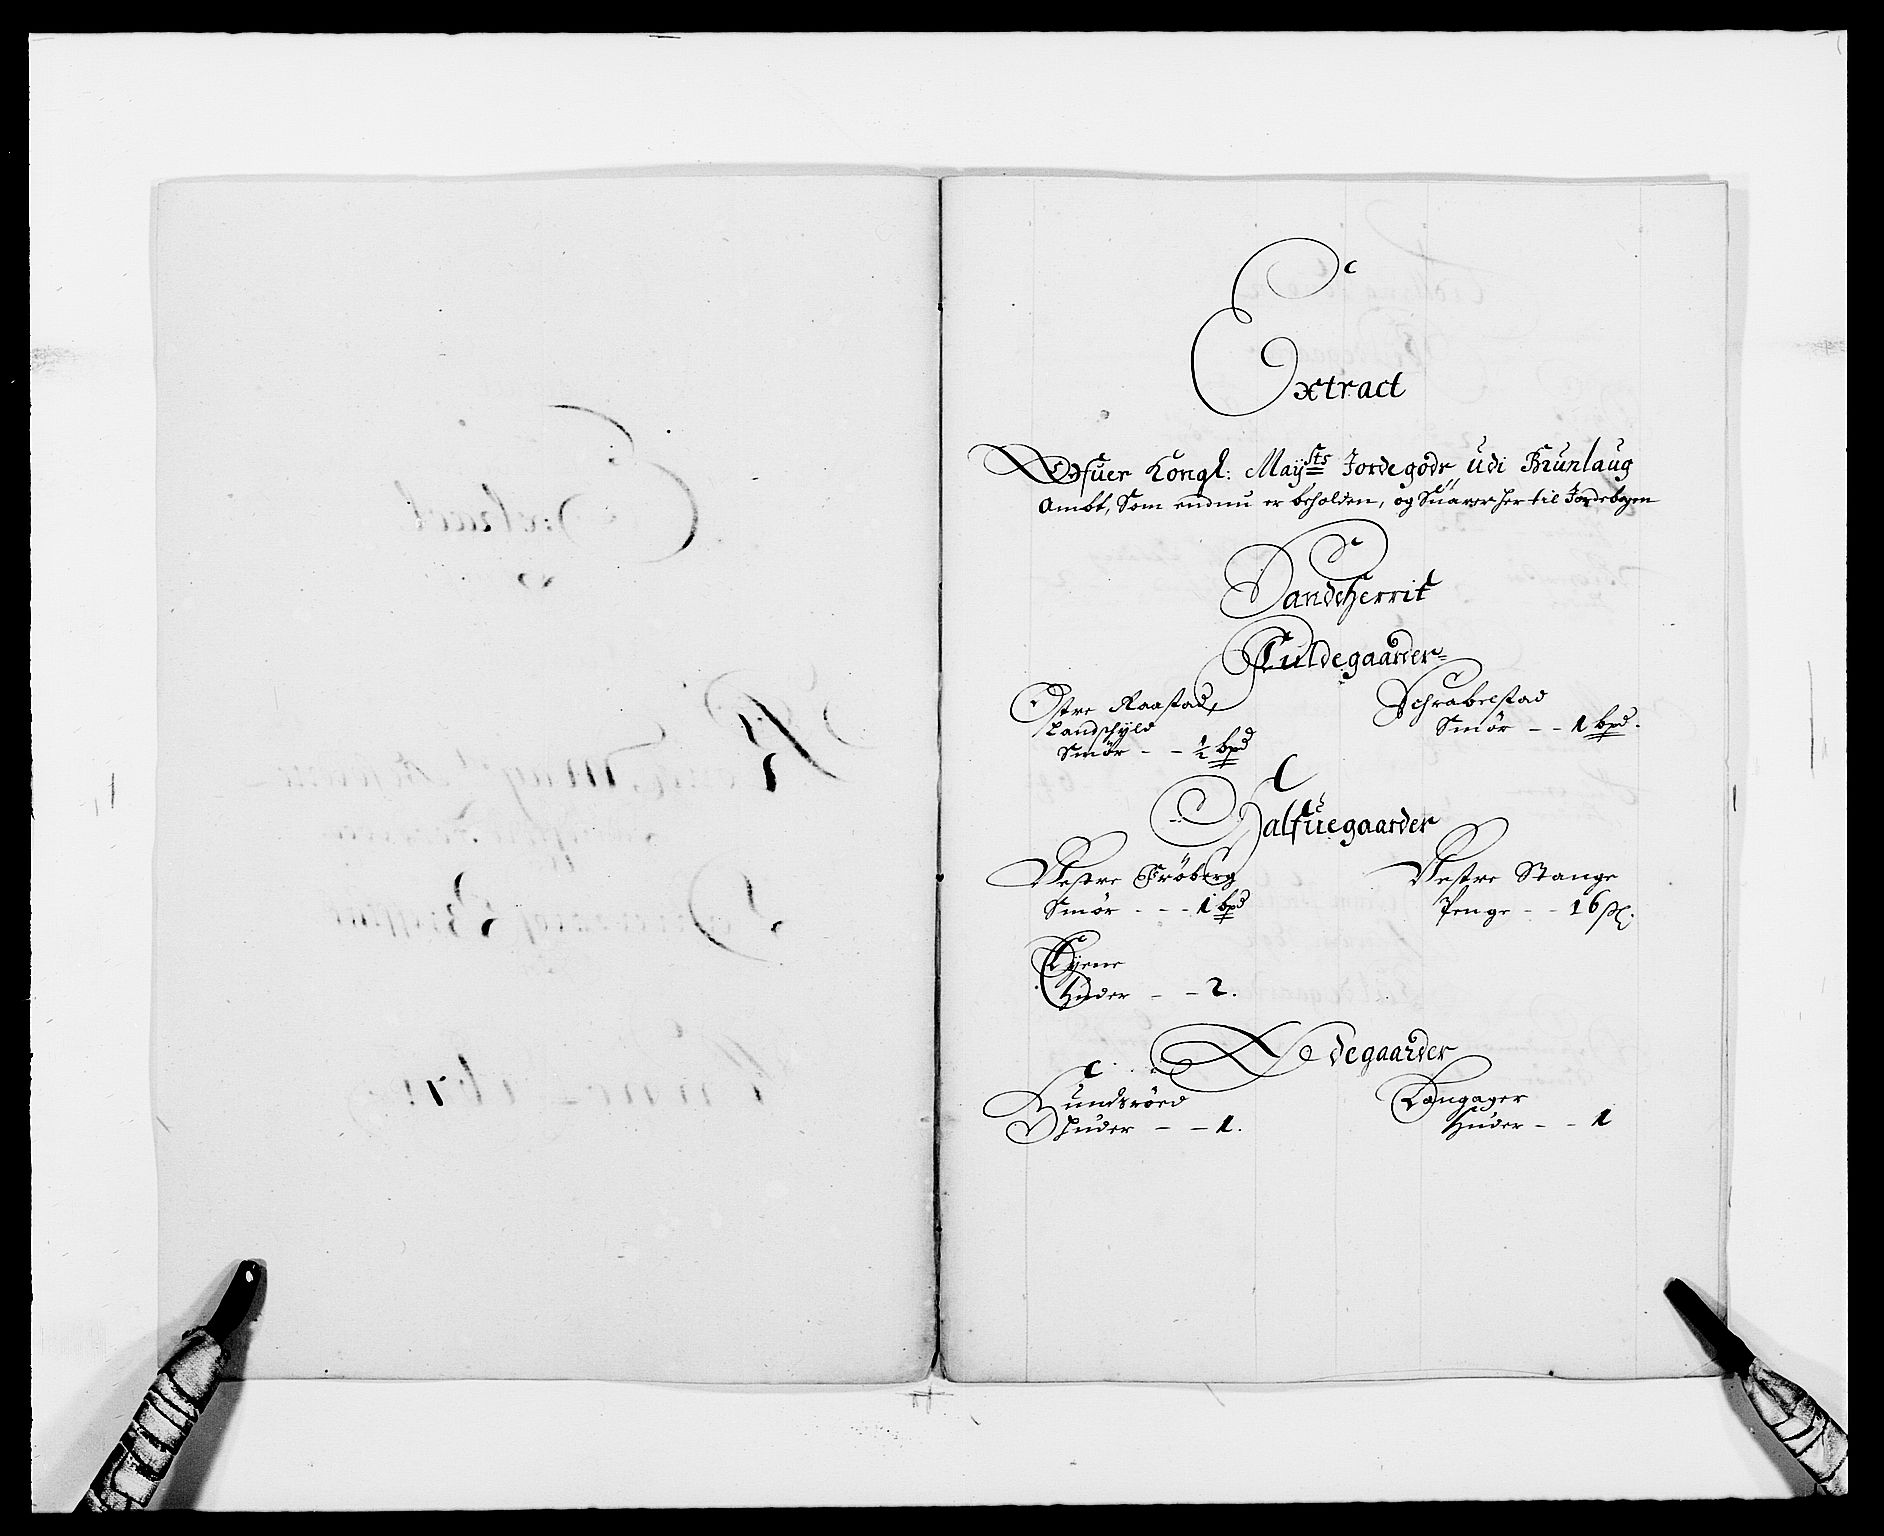 Extract
Ofuer Kongl: May<sup>sts</sup> Jordegods udi Brunlaug
Ambt, Som endnu er beholden, og Suarer her til Jordebogen
Sandeherrit
Fuldegaarder
Østre Raastad,
Landschyld
Smør - - ½ bpd
Schrabelstad
Smør - - 1 bpd.
Halfuegaarder
Vestre Frøberg
Smør - - - 1 bpd
Vestre Stange
Penge - - 16 sl.
Huder - - 2.
Ødegaarder
Gundsrøed
Huder - - 1.
Langager
Huder - - 1